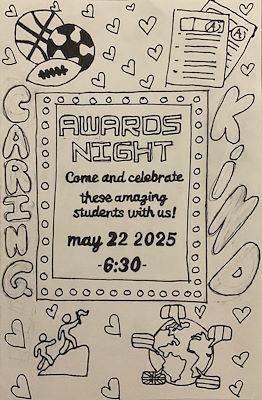 CARING
KIND
AWARDS
NIGHT
Come and celebrate
these amazing
students with us!
may 22 2025
-6:30-